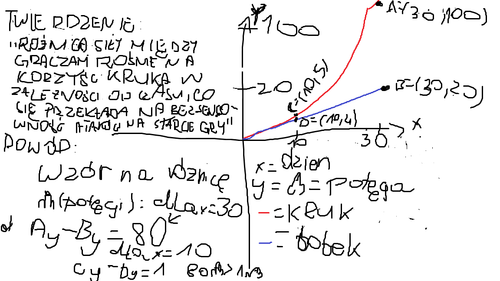 TWIERDZENIE:
"RÓŻNICA SIŁY MIĘDZY
GRACZAMI ROŚNIE NA
KORZYŚĆ KRUKA W
ZALEŻNOŚCI OD CZASU, CO
SIĘ PRZEKŁADA NA BEZSENSO-
WNOŚĆ ATAKU NA STARCIE GRY"
DOWÓD:
wzór na różnicę
(potęgi): dla x=30
Ay-By=80
dla x=10
Cy-Dy=1
y
100
20
A=(30,100)
B=(30,20)
C=(10,5)
D=(10,4)
10
30
x
x=dzień
y= =potęga
=KRUK
=bobek